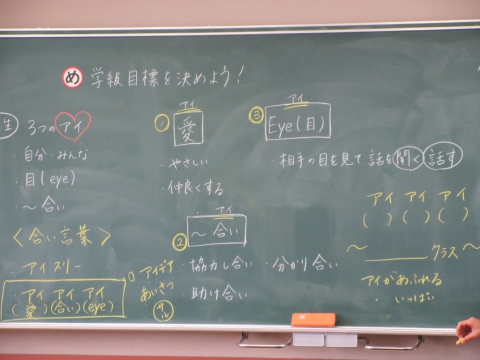 め 学級目標を決めよう!
生 3つのアイ
・自分・みんな
・目(eye)
・～合い
<合い言葉>
・アイスリー
アイ アイ アイ
(愛)(合い)(eye)
アイデア
あいさつ
① アイ
愛
・やさしい
・仲良くする
② アイ
～合い
・協力し合い ・分かり合い
・助け合い
③ アイ
Eye(目)
・相手の目を見て話を聞く 話す
アイ アイ アイ
( ) ( ) ( )
～ ＿＿＿ クラス ～
アイがあふれる
・いっぱい